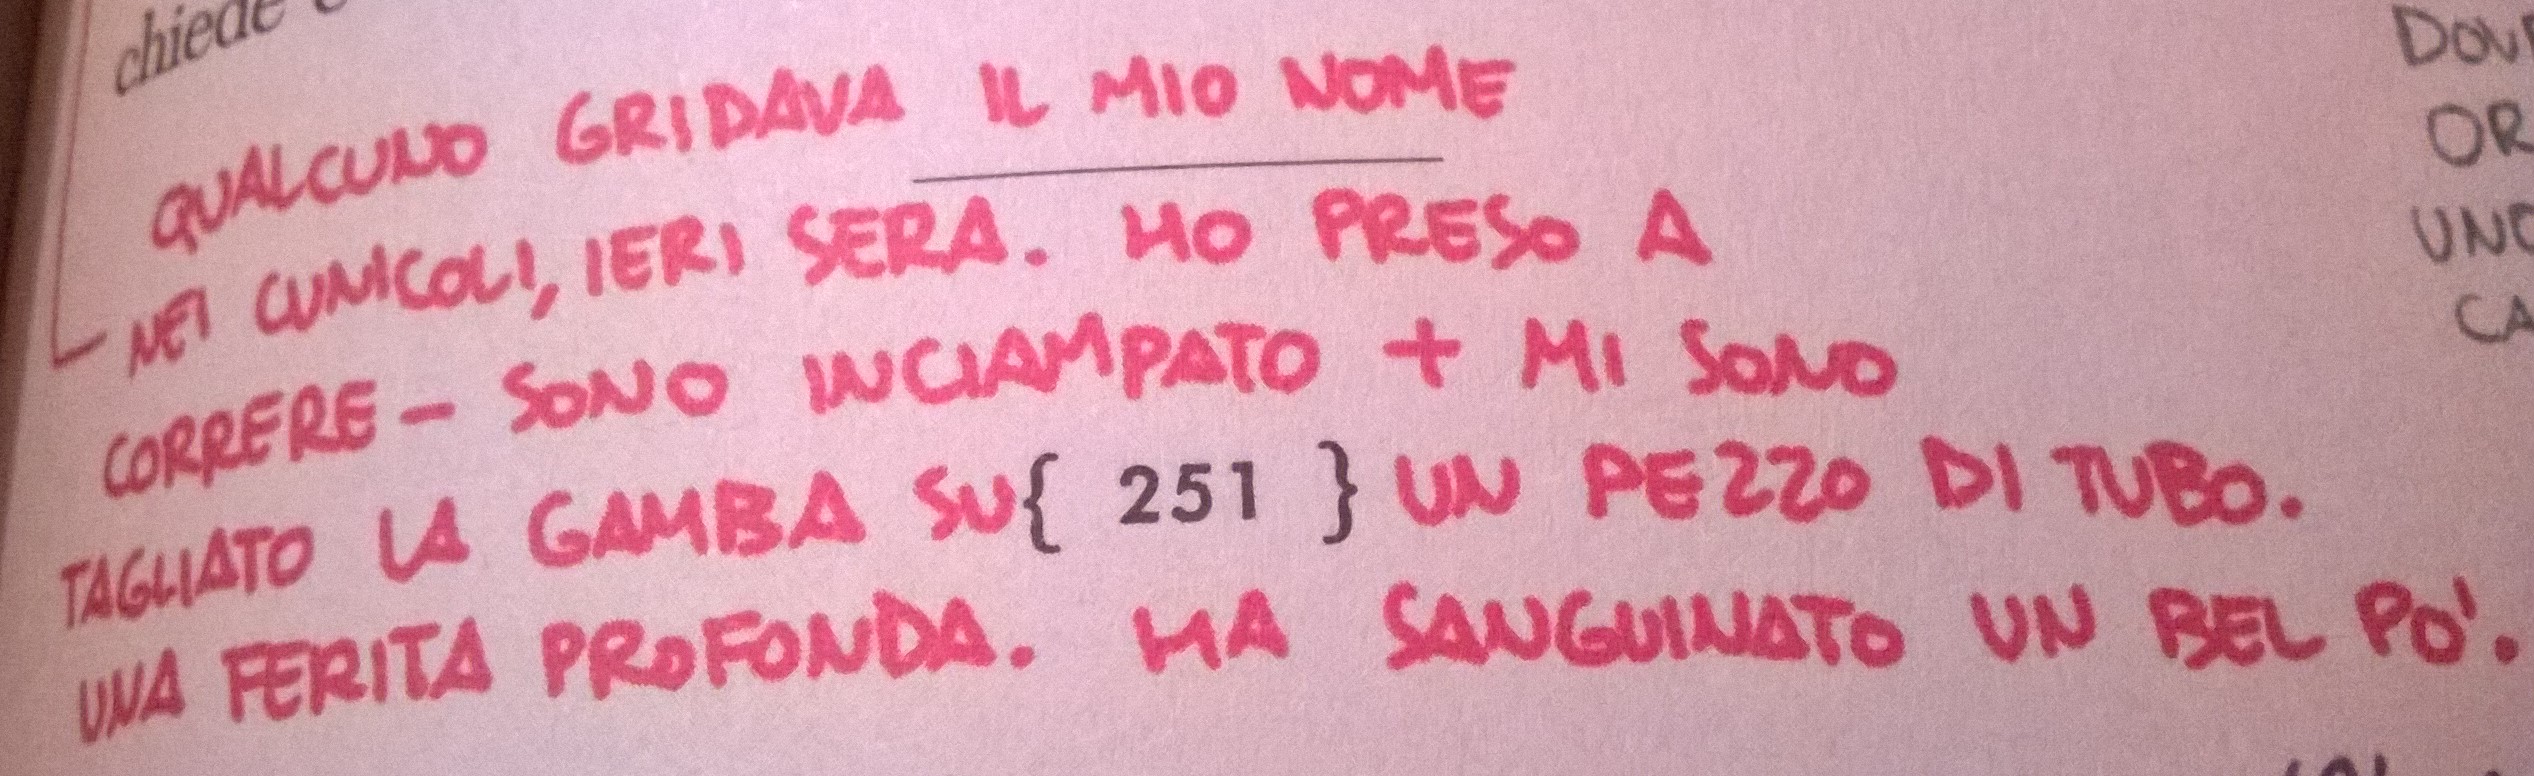 chiede
QUALCUNO GRIDAVA IL MIO NOME
NEI CUNICOLI, IERI SERA. HO PRESO A
CORRERE - SONO INCIAMPATO + MI SONO
TAGLIATO LA GAMBA SU { 251 } UN PEZZO DI TUBO.
UNA FERITA PROFONDA. HA SANGUINATO UN BEL PO'.
OR
CA